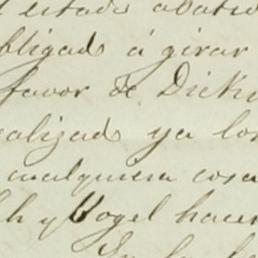 estado
obligado á girar
favor de Dick
ealizado ya los
cualquiera cosa
h y Vogel hacer